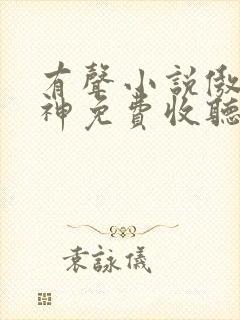 有聲小說傲
神免費收聽
袁詠儀